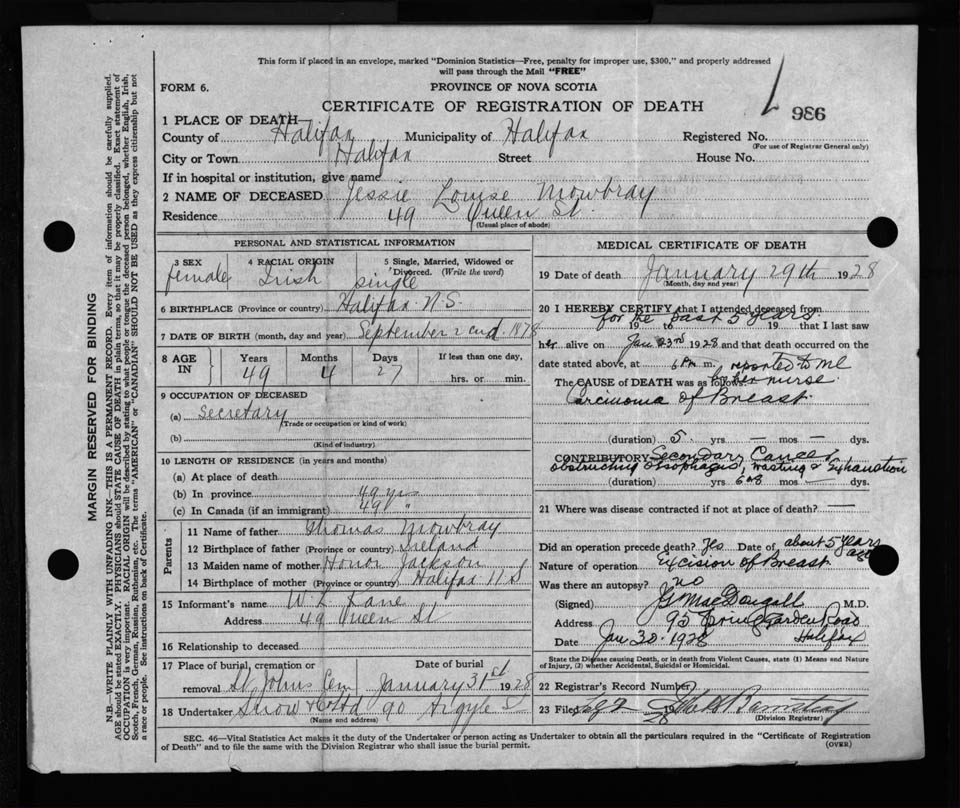 This form if placed in an envelope, marked "Dominion Statistics—Free, penalty for improper use, $300," and properly addressed
will pass through the Mail "FREE"
FORM 6.
PROVINCE OF NOVA SCOTIA
986
CERTIFICATE OF REGISTRATION OF DEATH
1 PLACE OF DEATH
County of Halifax Municipality of Halifax Registered No.
(For use of Registrar General only)
City or Town Halifax Street House No.
If in hospital or institution, give name
2 NAME OF DECEASED Jessie Louise Mowbray
Residence 49 Queen St.
(Usual place of abode)
PERSONAL AND STATISTICAL INFORMATION
3 SEX 4 RACIAL ORIGIN 5 Single, Married, Widowed or
Divorced. (Write the word)
female Irish single
6 BIRTHPLACE (Province or country) Halifax N.S.
7 DATE OF BIRTH (month, day and year) September 2 1878
8 AGE IN Years Months Days If less than one day,
49 4 27 hrs. or min.
9 OCCUPATION OF DECEASED
(a) Secretary
(Trade or occupation or kind of work)
(b)
(Kind of industry)
10 LENGTH OF RESIDENCE (in years and months)
(a) At place of death
(b) In province 49 yrs
(c) In Canada (if an immigrant) 49 "
Parents
11 Name of father Thomas Mowbray
12 Birthplace of father (Province or country) Ireland
13 Maiden name of mother Honor Jackson
14 Birthplace of mother (Province or country) Halifax N S
15 Informant's name W. L Kane
Address 49 Queen St
16 Relationship to deceased
17 Place of burial, cremation or removal St Johns Cem
Date of burial January 31st 1928
18 Undertaker Snow & Co Ltd 90 Argyle St
(Name and address)
MEDICAL CERTIFICATE OF DEATH
19 Date of death January 29th 1928
(Month, day and year)
20 I HEREBY CERTIFY that I attended deceased from
for the past 5 years
19 to 19 that I last saw
her alive on Jan 23rd 1928 and that death occurred on the
date stated above, at 6 PM m. reported to me
The CAUSE OF DEATH was as follows: by her nurse.
Carcinoma of Breast
(duration) 5 yrs — mos — dys.
CONTRIBUTORY Secondary Cancer
obstructing Esophagus, wasting & Exhaustion
(duration) yrs 6 or 8 mos — dys.
21 Where was disease contracted if not at place of death? —
Did an operation precede death? Yes Date of about 5 years ago
Nature of operation Excision of Breast.
Was there an autopsy? no
(Signed) J G MacDougall M.D.
Address 95 Spring Garden Road
Date Jan 30. 1928 Halifax
State the Disease causing Death, or in death from Violent Causes, state (1) Means and Nature
of Injury, (2) whether Accidental, Suicidal or Homicidal.
22 Registrar's Record Number
23 Filed 19
(Division Registrar)
SEC. 46—Vital Statistics Act makes it the duty of the Undertaker or person acting as Undertaker to obtain all the particulars required in the "Certificate of Registration
of Death" and to file the same with the Division Registrar who shall issue the burial permit.
(OVER)
MARGIN RESERVED FOR BINDING
N.B.—WRITE PLAINLY WITH UNFADING INK—THIS IS A PERMANENT RECORD. Every item of information should be carefully supplied.
AGE should be stated EXACTLY. PHYSICIANS should STATE CAUSE OF DEATH in plain terms, so that it may be properly classified. Exact statement of
OCCUPATION is very important. RACIAL ORIGIN will be described by stating to what people or tongue the deceased person belonged, whether English, Irish,
Scotch, French, German, Russian, Ruthenian, etc. The terms "AMERICAN" or "CANADIAN" SHOULD NOT BE USED as they express citizenship but not
a race or people. See instructions on back of Certificate.